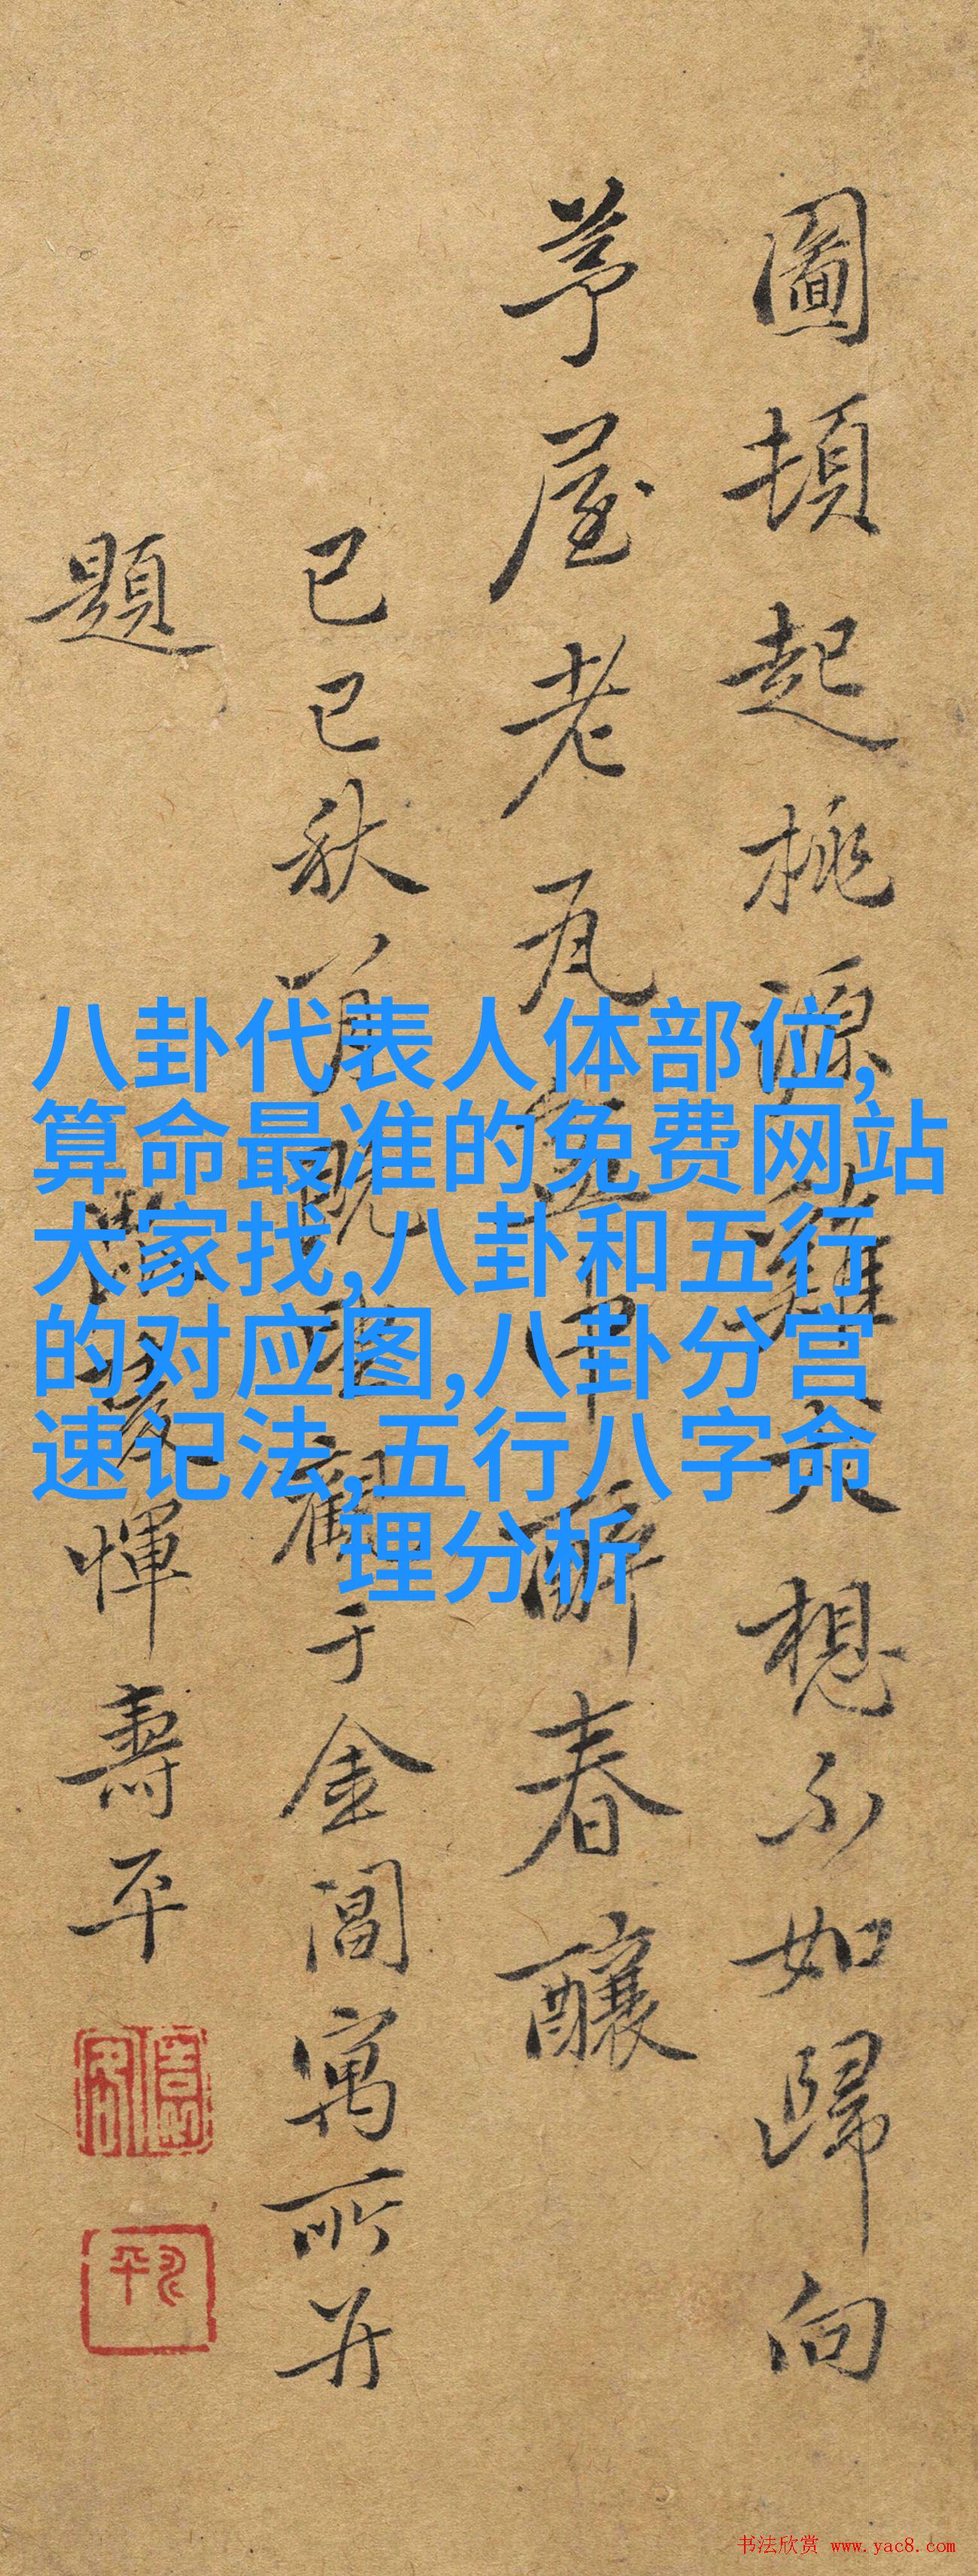 圖頓起桃源雞犬想不如歸向
茅屋老瓦盆中醉春釀
己巳秋八月既望觀于金閶寓所并
題
惲壽平
八卦代表人体部位,
算命最准的免费网站
大家找,八卦和五行
的对应图,八卦分宫
速记法,五行八字命
理分析
书法欣赏 www.yac8.com